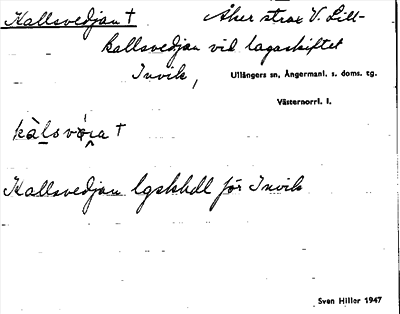 Kallsvedjan † Åker strax V. Lill-
kallsvedjan vid lagaskiftet
Invik,
Ullångers sn, Ångermanl. s. doms. tg.
Västernorrl. l.
Kallsvedjan lgskhdl för Invik
Sven Hiller 1947